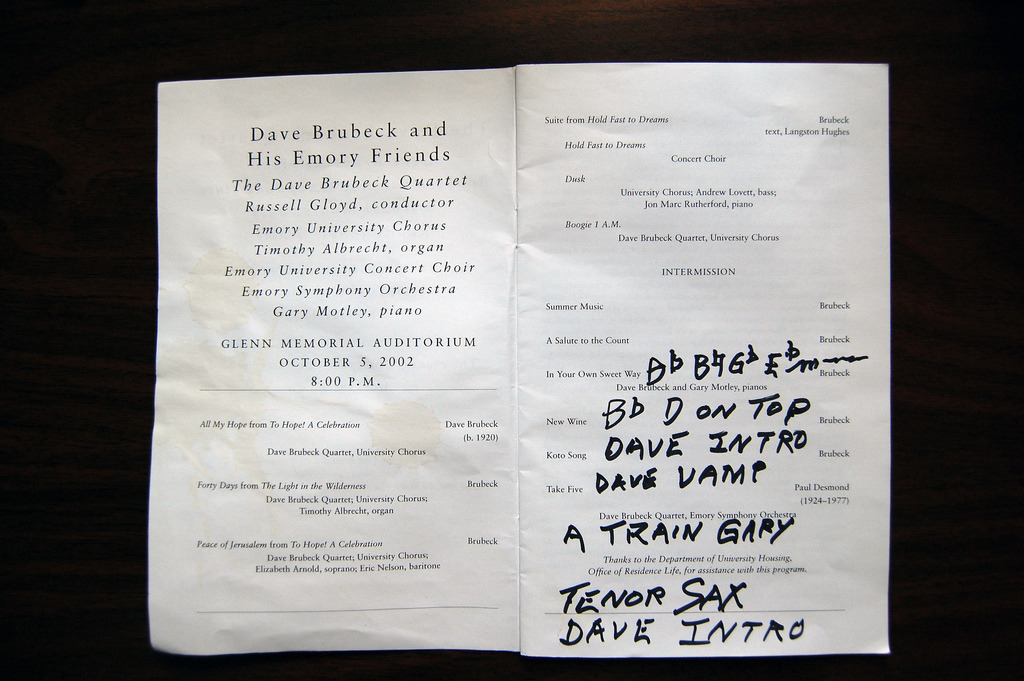 Dave Brubeck and
His Emory Friends
The Dave Brubeck Quartet
Russell Gloyd, conductor
Emory University Chorus
Timothy Albrecht, organ
Emory University Concert Choir
Emory Symphony Orchestra
Gary Motley, piano
GLENN MEMORIAL AUDITORIUM
OCTOBER 5, 2002
8:00 P.M.
All My Hope from To Hope! A Celebration Dave Brubeck
(b. 1920)
Dave Brubeck Quartet, University Chorus
Forty Days from The Light in the Wilderness Brubeck
Dave Brubeck Quartet; University Chorus;
Timothy Albrecht, organ
Peace of Jerusalem from To Hope! A Celebration Brubeck
Dave Brubeck Quartet; University Chorus;
Elizabeth Arnold, soprano; Eric Nelson, baritone
Suite from Hold Fast to Dreams Brubeck
text, Langston Hughes
Hold Fast to Dreams
Concert Choir
Dusk
University Chorus; Andrew Lovett, bass;
Jon Marc Rutherford, piano
Boogie 1 A.M.
Dave Brubeck Quartet, University Chorus
INTERMISSION
Summer Music Brubeck
A Salute to the Count Brubeck
In Your Own Sweet Way B♭ B♮ G♭ E♭m Brubeck
Dave Brubeck and Gary Motley, pianos
New Wine Bb D ON TOP Brubeck
Koto Song DAVE INTRO Brubeck
Take Five DAVE VAMP Paul Desmond
(1924–1977)
Dave Brubeck Quartet, Emory Symphony Orchestra
A TRAIN GARY
Thanks to the Department of University Housing,
Office of Residence Life, for assistance with this program.
TENOR SAX
DAVE INTRO